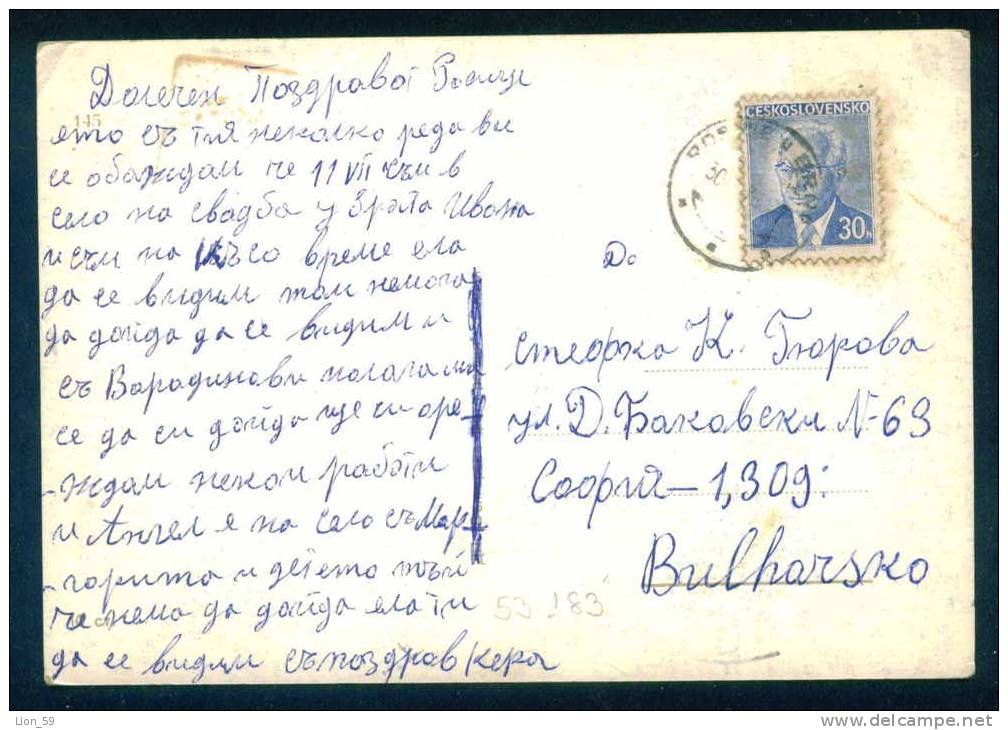 Долечен Поздравот
145
ето съ тия неколко реда ви
се обаждам че 11 VII съм в
село на свадба у Златa Ивана
и съм на късо време ела
да се видим там немога
да дойда да се видим и
съ Вародинови полага ми
се да си дойда ще си оре-
-ждам некои работи
и Ангел е на село съ Марг
-горита и детето тъй
че нема да дойда ела ти
да се видим съ поздрав Кера
ČESKOSLOVENSKO
30h
До
стефка К. Гюрова
ул. Д. Баковски N-63
София - 1,309:
Bulharsko
53 183
Lion_59
www.delcampe.net